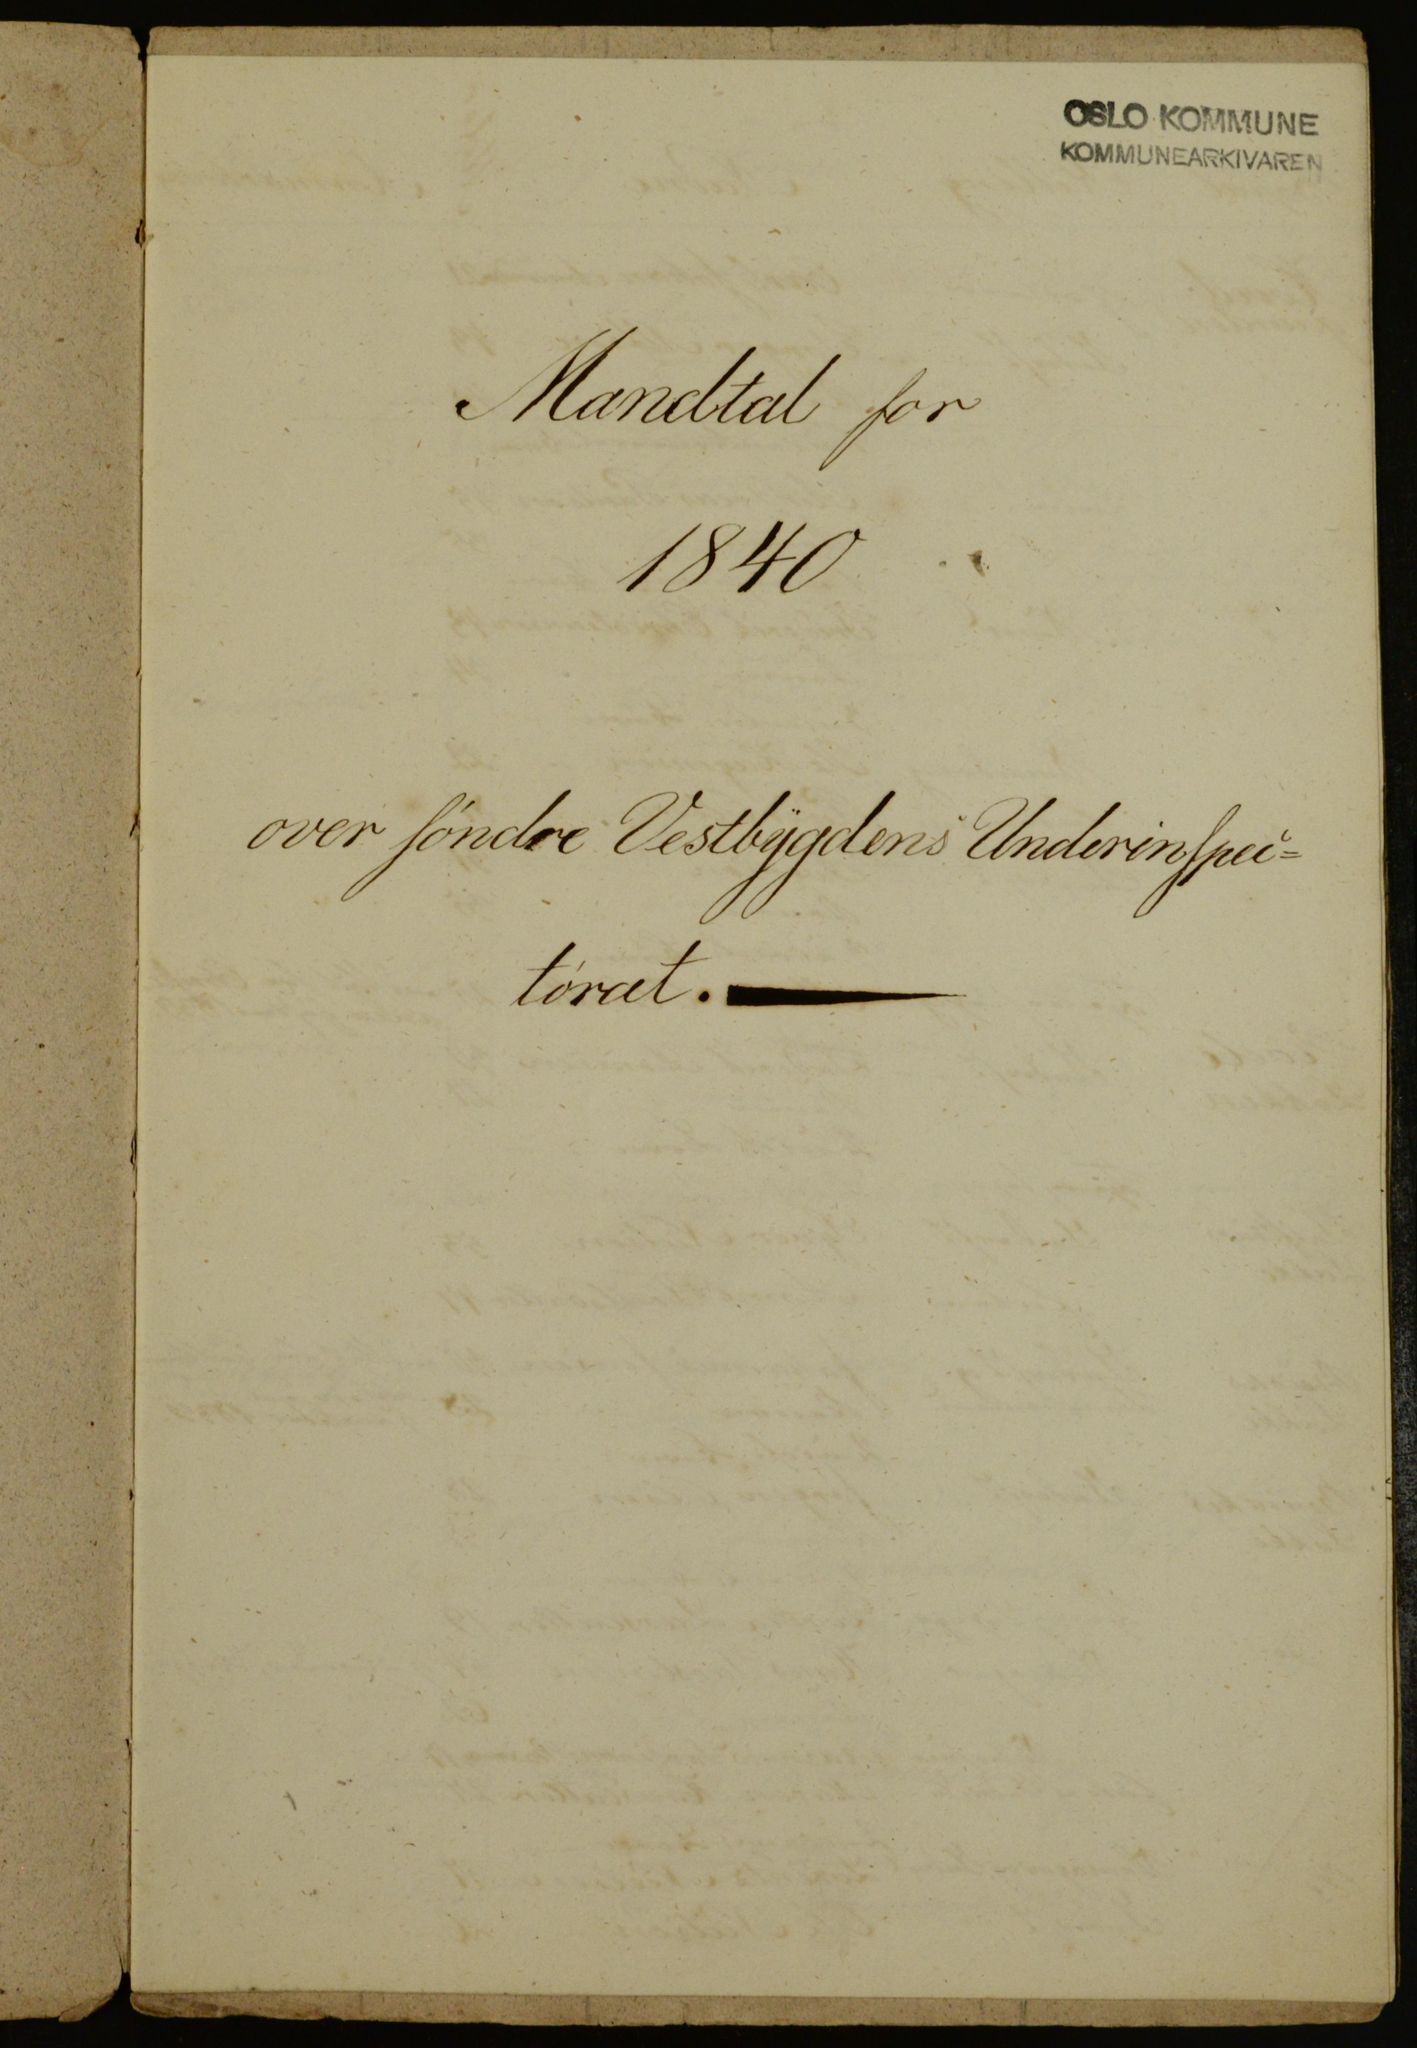 OSLO KOMMUNE
KOMMUNEARKIVAREN
Mandtal for
1840
over søndre Vestbÿgdens Underinspec=
torat.